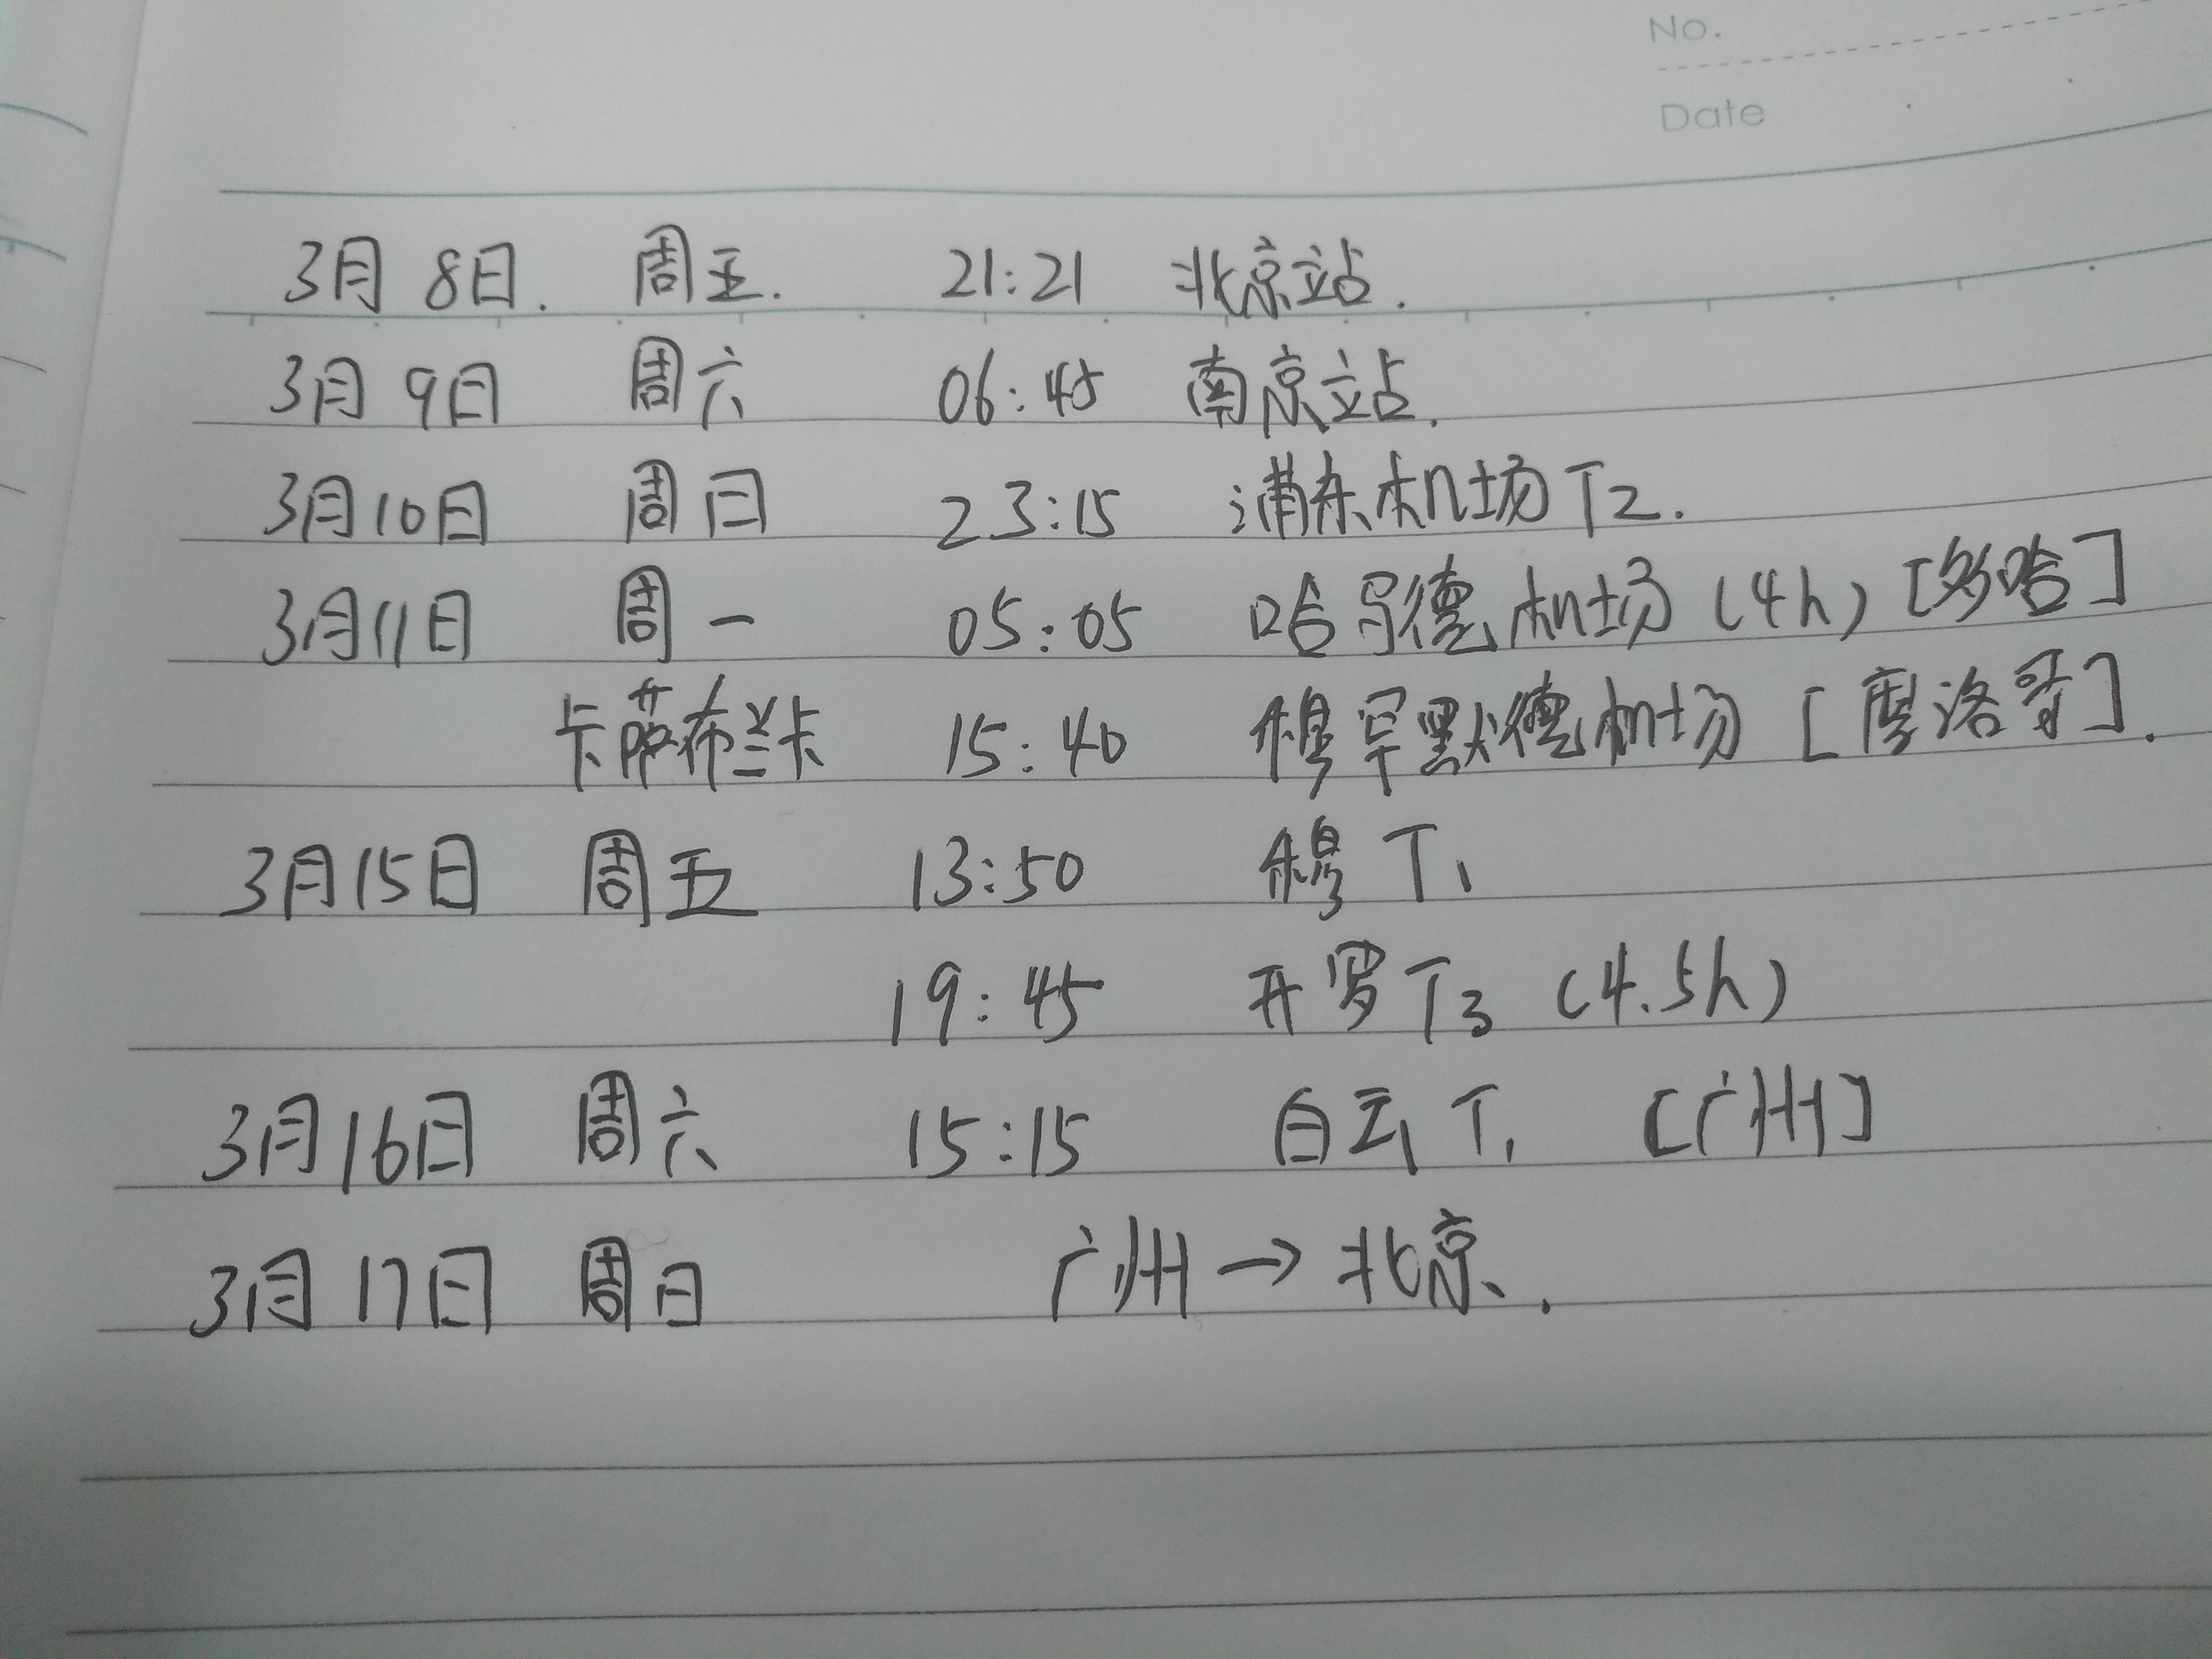 No.
Date
3月8日. 周五. 21:21 北京站.
3月9日 周六 06:45 南京站.
3月10日 周日 23:15 浦东机场T2.
3月11日 周一 05:05 哈马德机场(4h)[多哈]
卡萨布兰卡 15:40 穆罕默德机场[摩洛哥].
3月15日 周五 13:50 穆T1
19:45 开罗T3 (4.5h)
3月16日 周六 15:15 白云T1 [广州]
3月17日 周日 广州→北京.